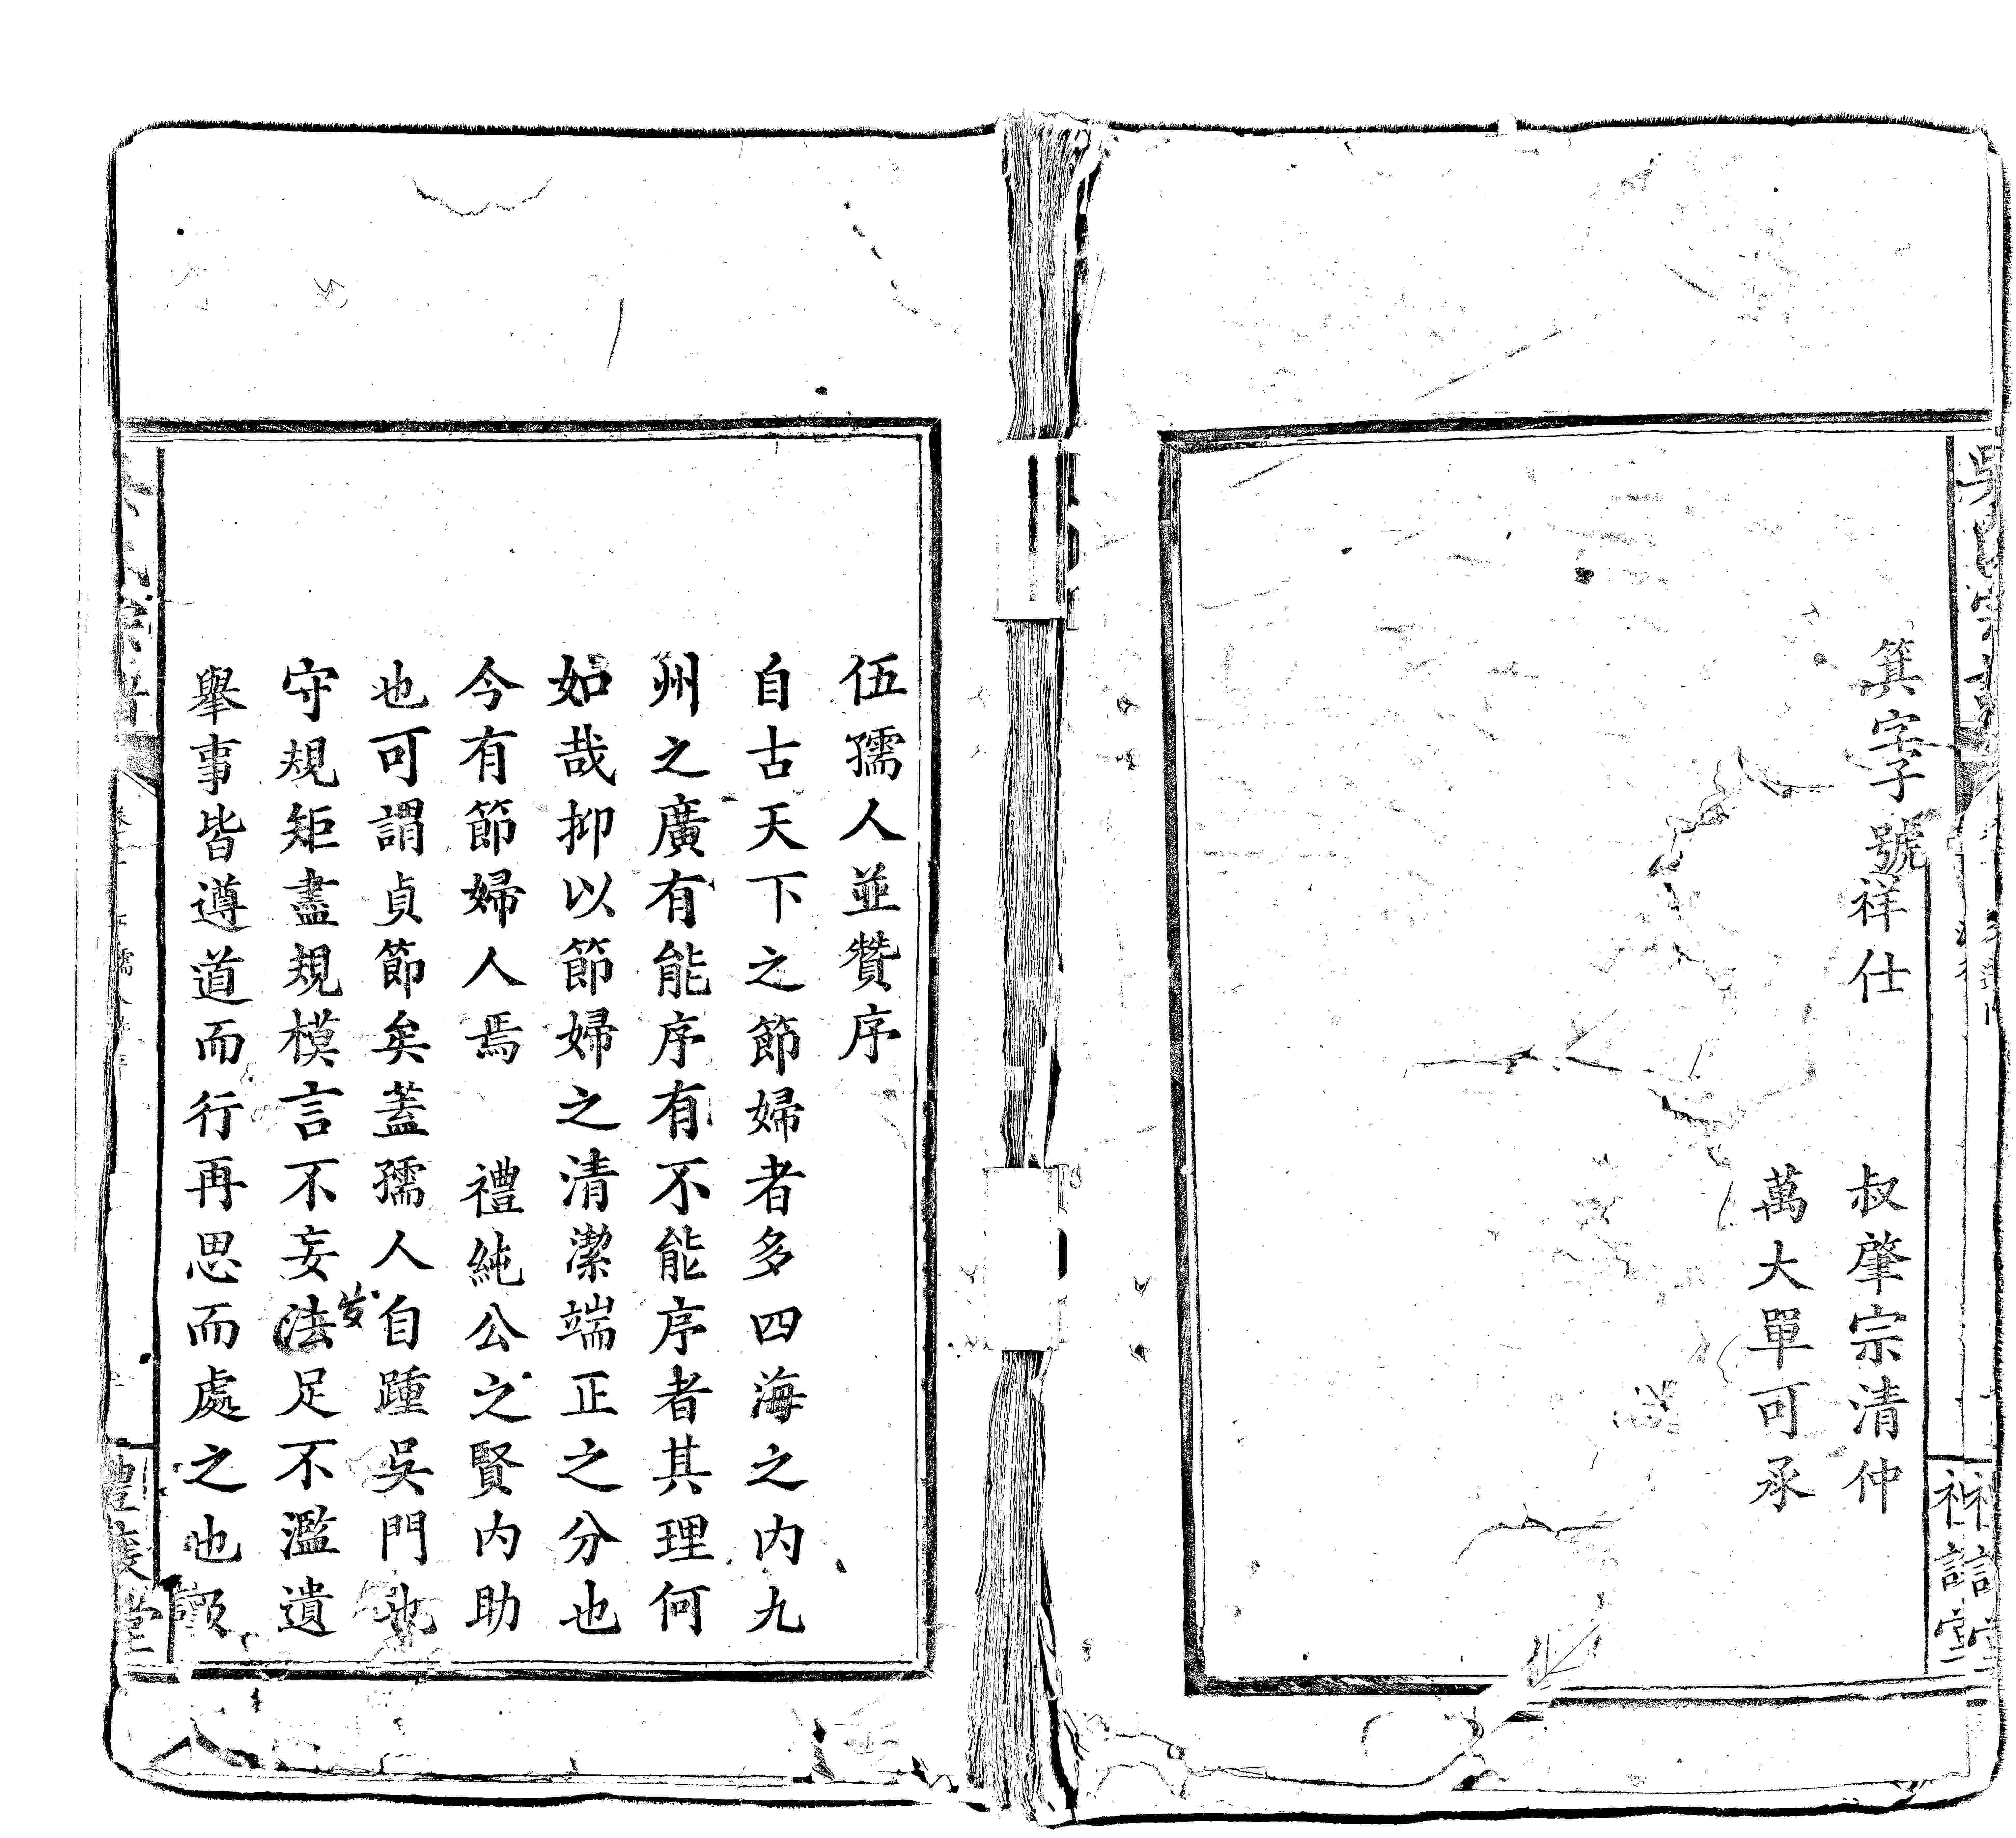 箕字子號祥仕
叔肇宗清仲
萬大單可承
伍孺人並贊序
自古天下之節婦者多四海之内九
州之廣有能序有不能序者其理何
如哉抑以節婦之清潔端正之分也
今有節婦人焉　禮純公之賢内助
也可謂貞節矣蓋孺人自踵吳門也
守規矩盡規模言不妄法足不濫遺
发
舉事皆遵道而行再思而處之也
禮義堂